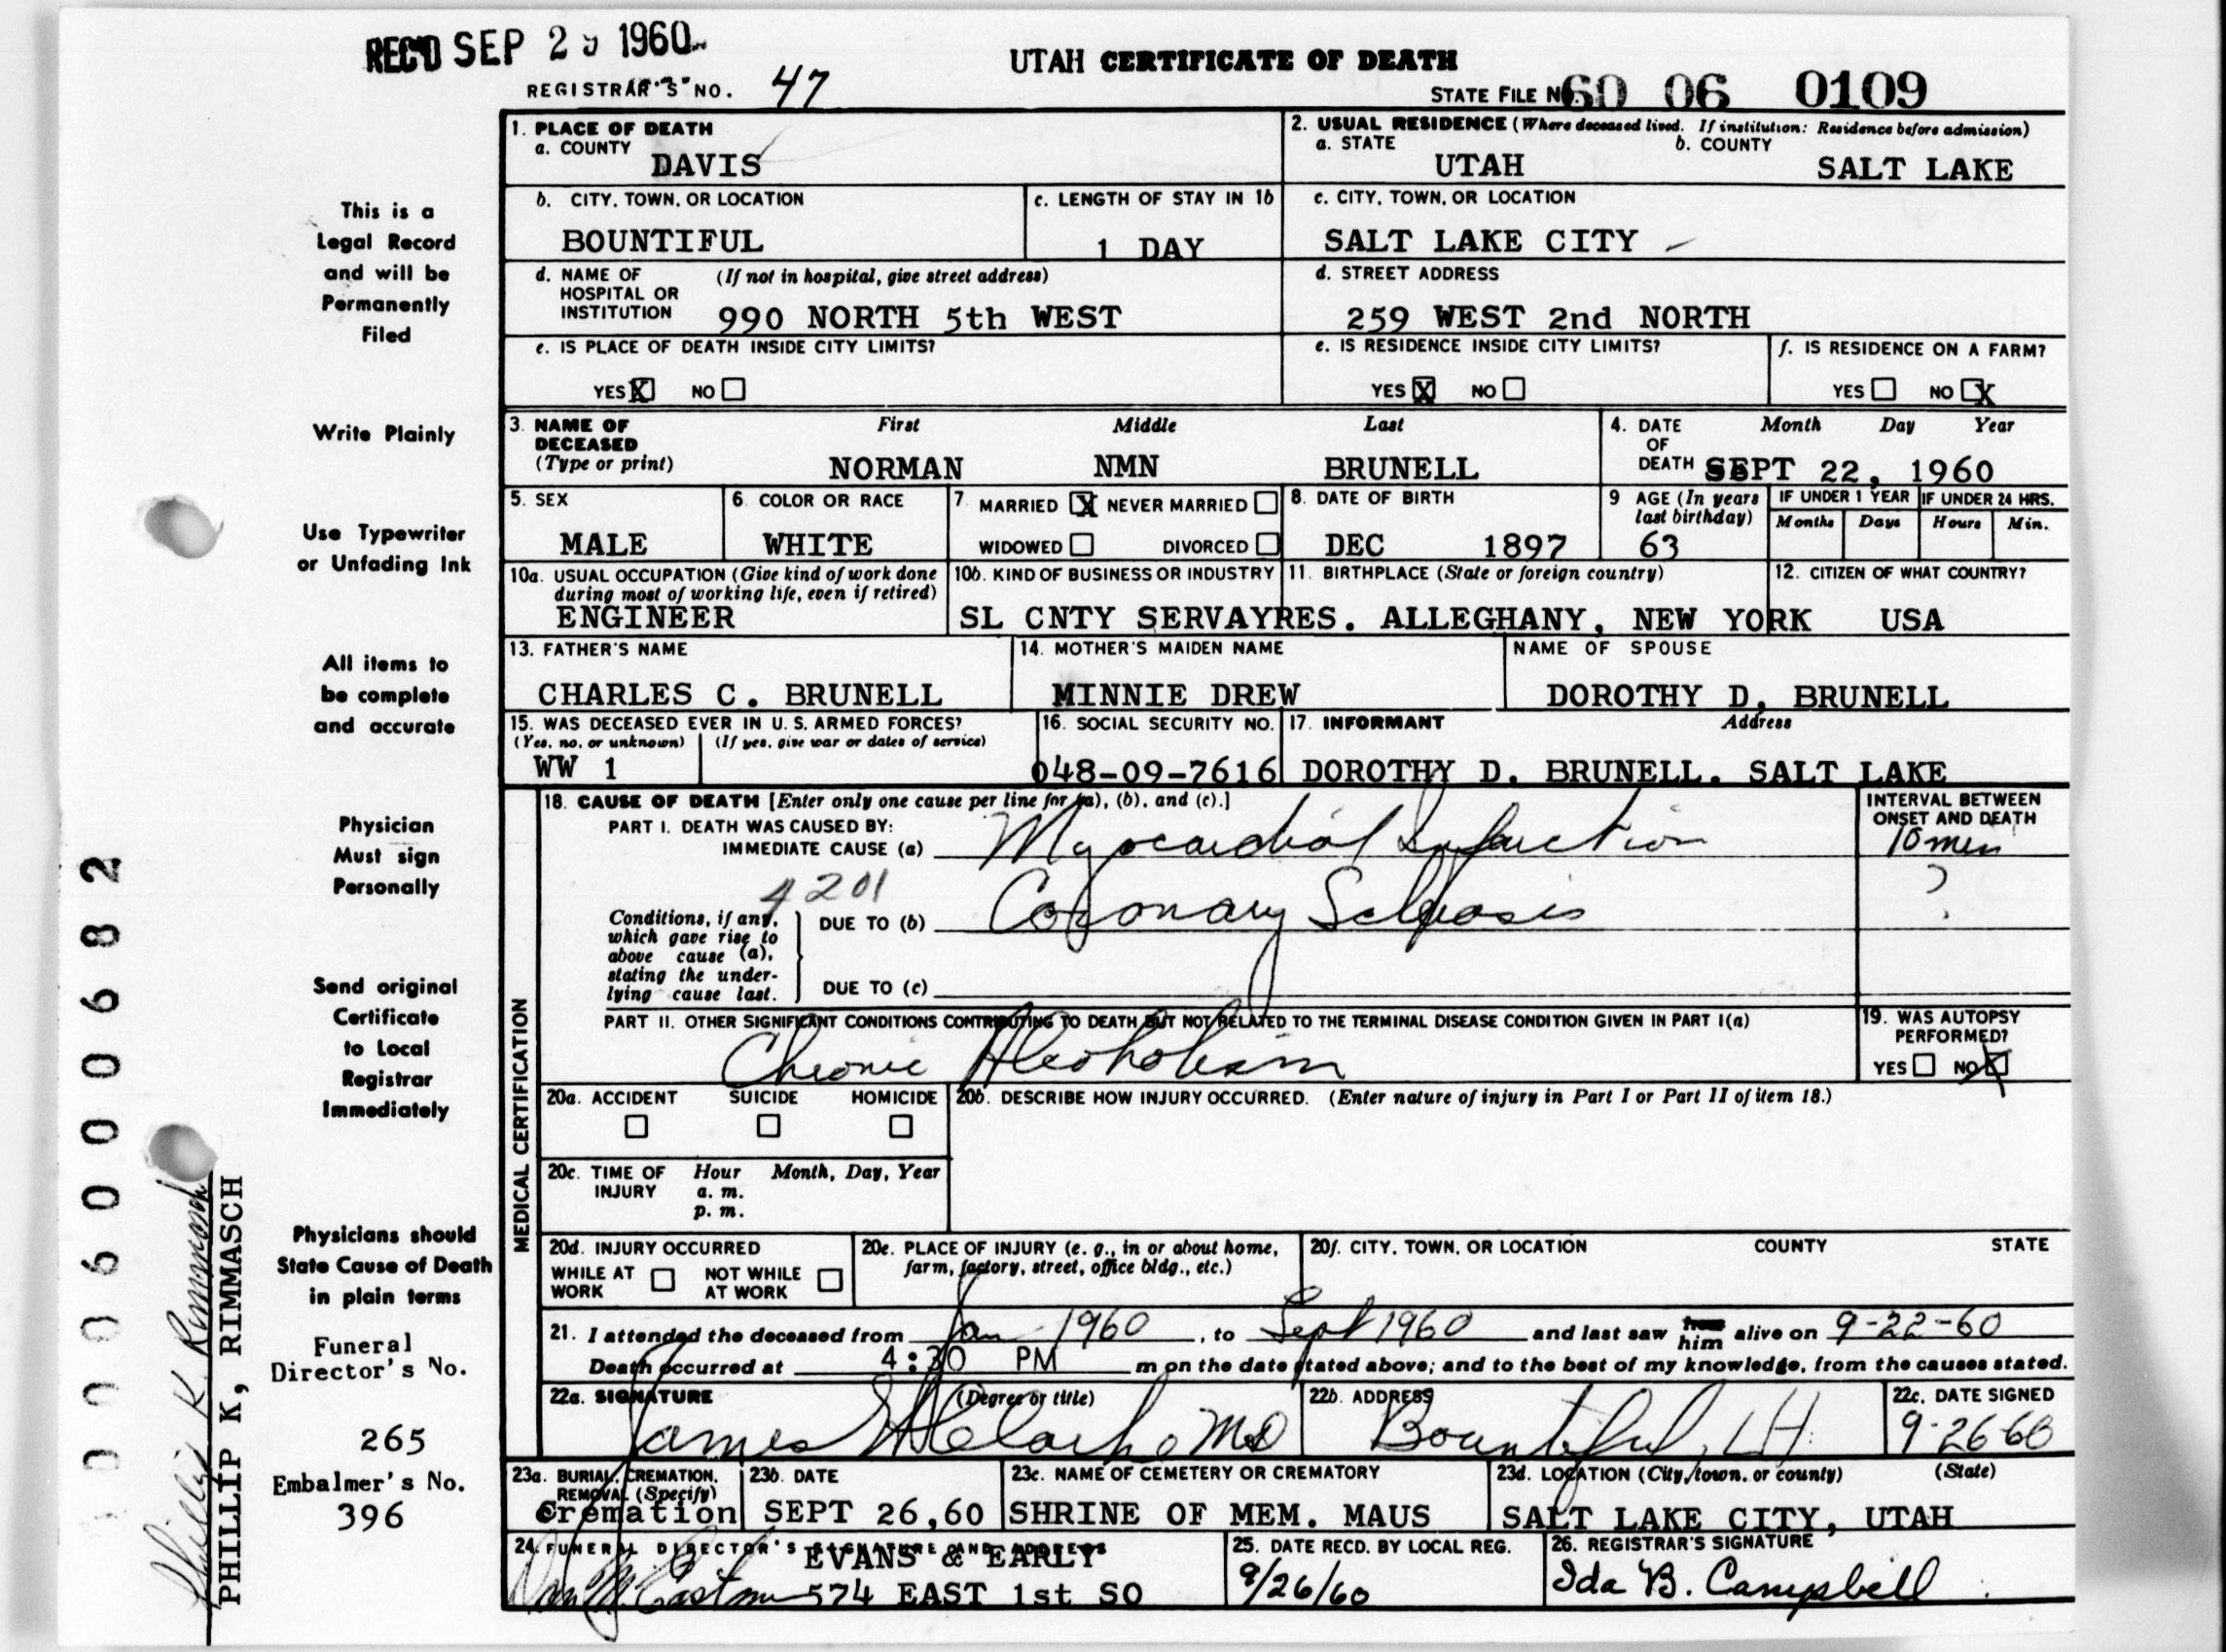 REC'D SEP 29 1960
UTAH CERTIFICATE OF DEATH
REGISTRAR'S NO. 47
STATE FILE NO. 60 06 0109
1. PLACE OF DEATH
a. COUNTY
DAVIS
2. USUAL RESIDENCE (Where deceased lived. If institution: Residence before admission)
a. STATE b. COUNTY
UTAH SALT LAKE
b. CITY, TOWN, OR LOCATION
BOUNTIFUL
c. LENGTH OF STAY IN 1b
1 DAY
c. CITY, TOWN, OR LOCATION
SALT LAKE CITY
d. NAME OF HOSPITAL OR INSTITUTION (If not in hospital, give street address)
990 NORTH 5th WEST
d. STREET ADDRESS
259 WEST 2nd NORTH
e. IS PLACE OF DEATH INSIDE CITY LIMITS?
YES X NO
e. IS RESIDENCE INSIDE CITY LIMITS?
YES X NO
f. IS RESIDENCE ON A FARM?
YES NO X
3. NAME OF DECEASED (Type or print)
First Middle Last
NORMAN NMN BRUNELL
4. DATE OF DEATH Month Day Year
SEPT 22, 1960
5. SEX
MALE
6. COLOR OR RACE
WHITE
7. MARRIED X NEVER MARRIED
WIDOWED DIVORCED
8. DATE OF BIRTH
DEC 1897
9 AGE (In years last birthday)
63
IF UNDER 1 YEAR IF UNDER 24 HRS.
Months Days Hours Min.
10a. USUAL OCCUPATION (Give kind of work done during most of working life, even if retired)
ENGINEER
10b. KIND OF BUSINESS OR INDUSTRY
SL CNTY SERVAYRES.
11. BIRTHPLACE (State or foreign country)
ALLEGHANY, NEW YORK
12. CITIZEN OF WHAT COUNTRY?
USA
13. FATHER'S NAME
CHARLES C. BRUNELL
14. MOTHER'S MAIDEN NAME
MINNIE DREW
NAME OF SPOUSE
DOROTHY D, BRUNELL
15. WAS DECEASED EVER IN U.S. ARMED FORCES?
(Yes, no, or unknown) (If yes, give war or dates of service)
WW 1
16. SOCIAL SECURITY NO.
048-09-7616
17. INFORMANT Address
DOROTHY D. BRUNELL. SALT LAKE
MEDICAL CERTIFICATION
18. CAUSE OF DEATH [Enter only one cause per line for (a), (b), and (c).]
PART I. DEATH WAS CAUSED BY:
IMMEDIATE CAUSE (a) Myocardial Infarction
INTERVAL BETWEEN ONSET AND DEATH
10 min
4201
Conditions, if any, which gave rise to above cause (a), stating the underlying cause last.
DUE TO (b) Coronary Sclerosis
?
DUE TO (c)
PART II. OTHER SIGNIFICANT CONDITIONS CONTRIBUTING TO DEATH BUT NOT RELATED TO THE TERMINAL DISEASE CONDITION GIVEN IN PART I(a)
Chronic Alcoholism
19. WAS AUTOPSY PERFORMED?
YES NO X
20a. ACCIDENT SUICIDE HOMICIDE
20b. DESCRIBE HOW INJURY OCCURRED. (Enter nature of injury in Part I or Part II of item 18.)
20c. TIME OF INJURY Hour Month, Day, Year
a. m.
p. m.
20d. INJURY OCCURRED
WHILE AT WORK NOT WHILE AT WORK
20e. PLACE OF INJURY (e. g., in or about home, farm, factory, street, office bldg., etc.)
20f. CITY, TOWN, OR LOCATION COUNTY STATE
21. I attended the deceased from Jan 1960, to Sept 1960 and last saw him alive on 9-22-60
Death occurred at 4:30 PM m on the date stated above; and to the best of my knowledge, from the causes stated.
22a. SIGNATURE (Degree or title)
James MD
22b. ADDRESS
Bountiful, UH.
22c. DATE SIGNED
9-26-60
23a. BURIAL, CREMATION, REMOVAL (Specify)
Cremation
23b. DATE
SEPT 26,60
23c. NAME OF CEMETERY OR CREMATORY
SHRINE OF MEM. MAUS
23d. LOCATION (City, town, or county) (State)
SALT LAKE CITY, UTAH
24. FUNERAL DIRECTOR'S SIGNATURE AND ADDRESS
EVANS & EARLY
574 EAST 1st SO
25. DATE RECD. BY LOCAL REG.
9/26/60
26. REGISTRAR'S SIGNATURE
Ida B. Campbell
This is a
Legal Record
and will be
Permanently
Filed
Write Plainly
Use Typewriter
or Unfading Ink
All items to
be complete
and accurate
Physician
Must sign
Personally
Send original
Certificate
to Local
Registrar
Immediately
Physicians should
State Cause of Death
in plain terms
Funeral
Director's No.
265
Embalmer's No.
396
Phillip K. Rimmasch
PHILLIP K, RIMMASCH
0006000682